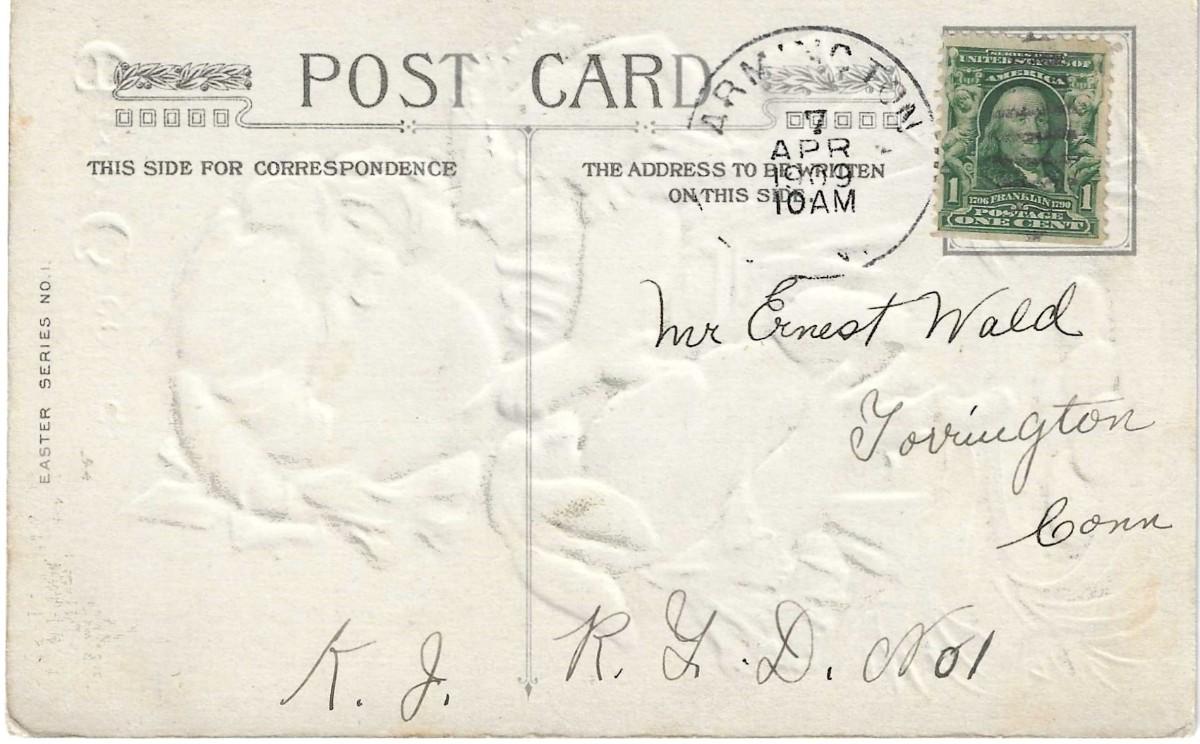 POST CARD
THIS SIDE FOR CORRESPONDENCE
THE ADDRESS TO BE WRITTEN
ON THIS SIDE
ARMINGTON
7
APR
1909
10AM
SERIES 1902
UNITED STATES OF
AMERICA
1 1
1706 FRANKLIN 1790
POSTAGE
ONE CENT
EASTER SERIES NO. 1.
Mr Ernest Wald
Torrington
Conn
K. J. R. F. D. No 1